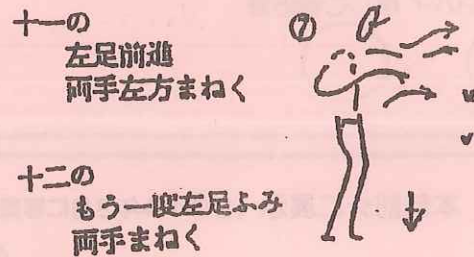 十一の
左足前進
両手左方まねく
⑦
十二の
もう一度左足ふみ
両手まねく